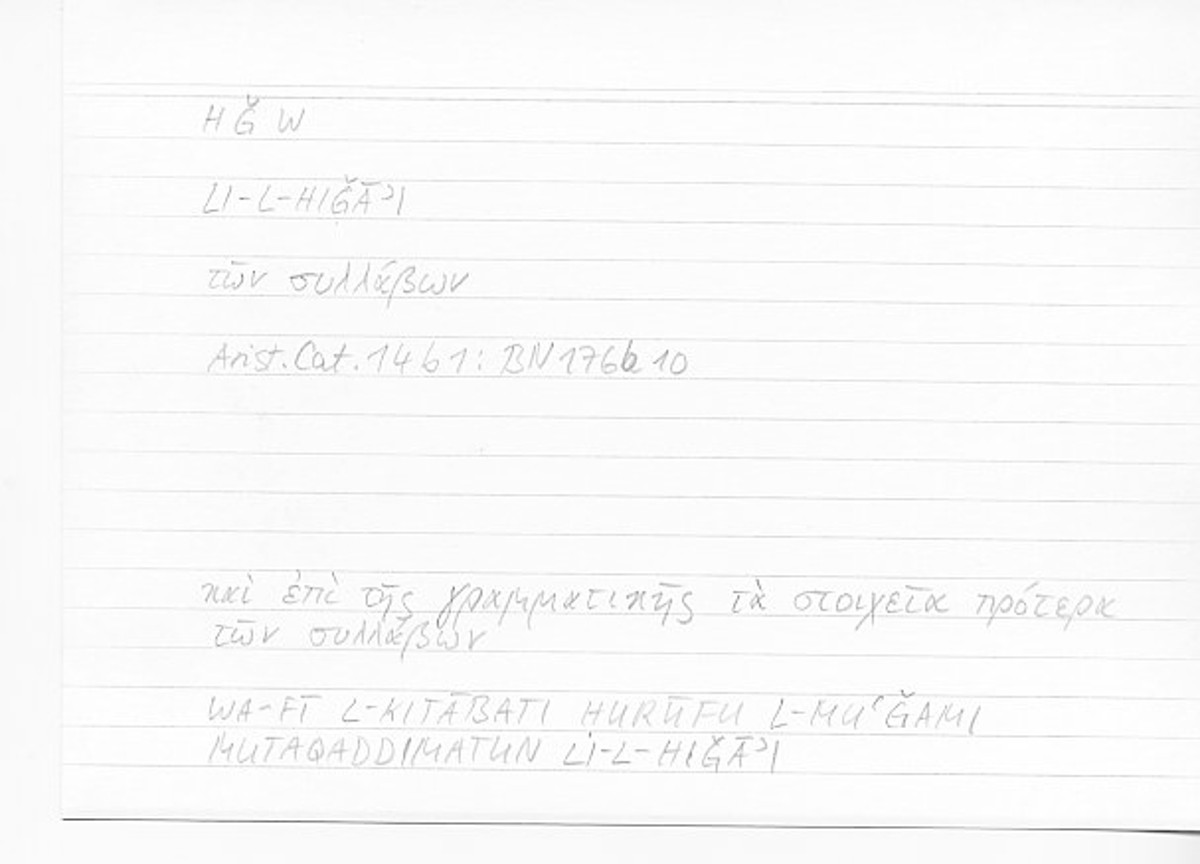 H Ǧ W
LI-L-HIǦĀʾI
τῶν συλλάβων
Arist. Cat. 14 b 1 : BN 176b 10
καὶ ἐπὶ τῆς γραμματικῆς τὰ στοιχεῖα πρότερα
τῶν συλλαβῶν
WA-FĪ L-KITĀBATI HURŪFU L-MUʿǦAMI
MUTAQADDIMATUN LI-L-HIǦĀʾI